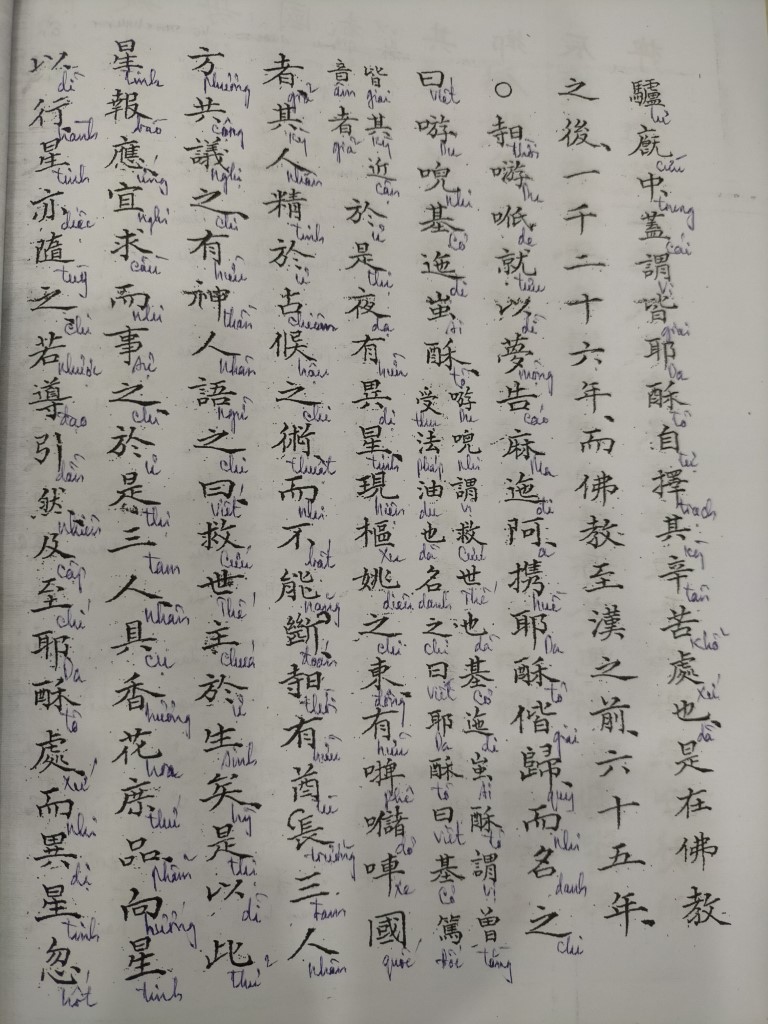 驢廐中、蓋謂皆耶酥自擇其辛苦處也、是在佛教
lư cứu trung cái vị giai Da tô tự trạch kỳ tân khổ xứ dã
之後、一千二十六年、而佛教至漢之前、六十五年、
○時呧就以夢告麻迤阿、携耶酥偕歸、而名之
thời du đe tựu dĩ mộng cáo Ma di a huề Da tô giai quy nhi danh chi
曰唲基迤蚩酥、
viết Du nhi Cơ di Si tô
唲謂救世也基迤蚩酥謂曾
Du nhi vị cứu thế dã Cơ di Si tô vị tằng
受法油也名之曰耶酥曰基篤
thụ pháp dù dã danh chi viết Da tô viết Cơ đốc
皆其近
giai kỳ cận
音者
âm giả
於是夜有異星、現樞姚之東、有啤唓國
ư thị dạ hữu dị tinh hiện xu diêu chi đông hữu xa quốc
者、其人精於占候之術、而不能斷、時有酋長三人
giả kỳ nhân tinh ư chiêm hậu chi thuật nhi bất năng đoán thời hữu tù trưởng tam nhân
方共議之、有神人語之曰、救世主於生矣、是以此
phương cộng nghị chi hữu thần nhân ngữ chi viết cứu thế chúa ư sinh hỹ thị dĩ thử
星報應、宜求而事之、於是三人、具香花庶品、向星
tinh báo ứng nghi cầu nhi sử chi ư thị tam nhân cụ hương hoa thứ phẩm hướng tinh
以行、星亦隨之、若導引然、及至耶酥處、而異星忽
dĩ hành tinh diệc tuỳ chi nhược đạo dẫn nhiên cập chí Da tô xứ nhi dị tinh hốt